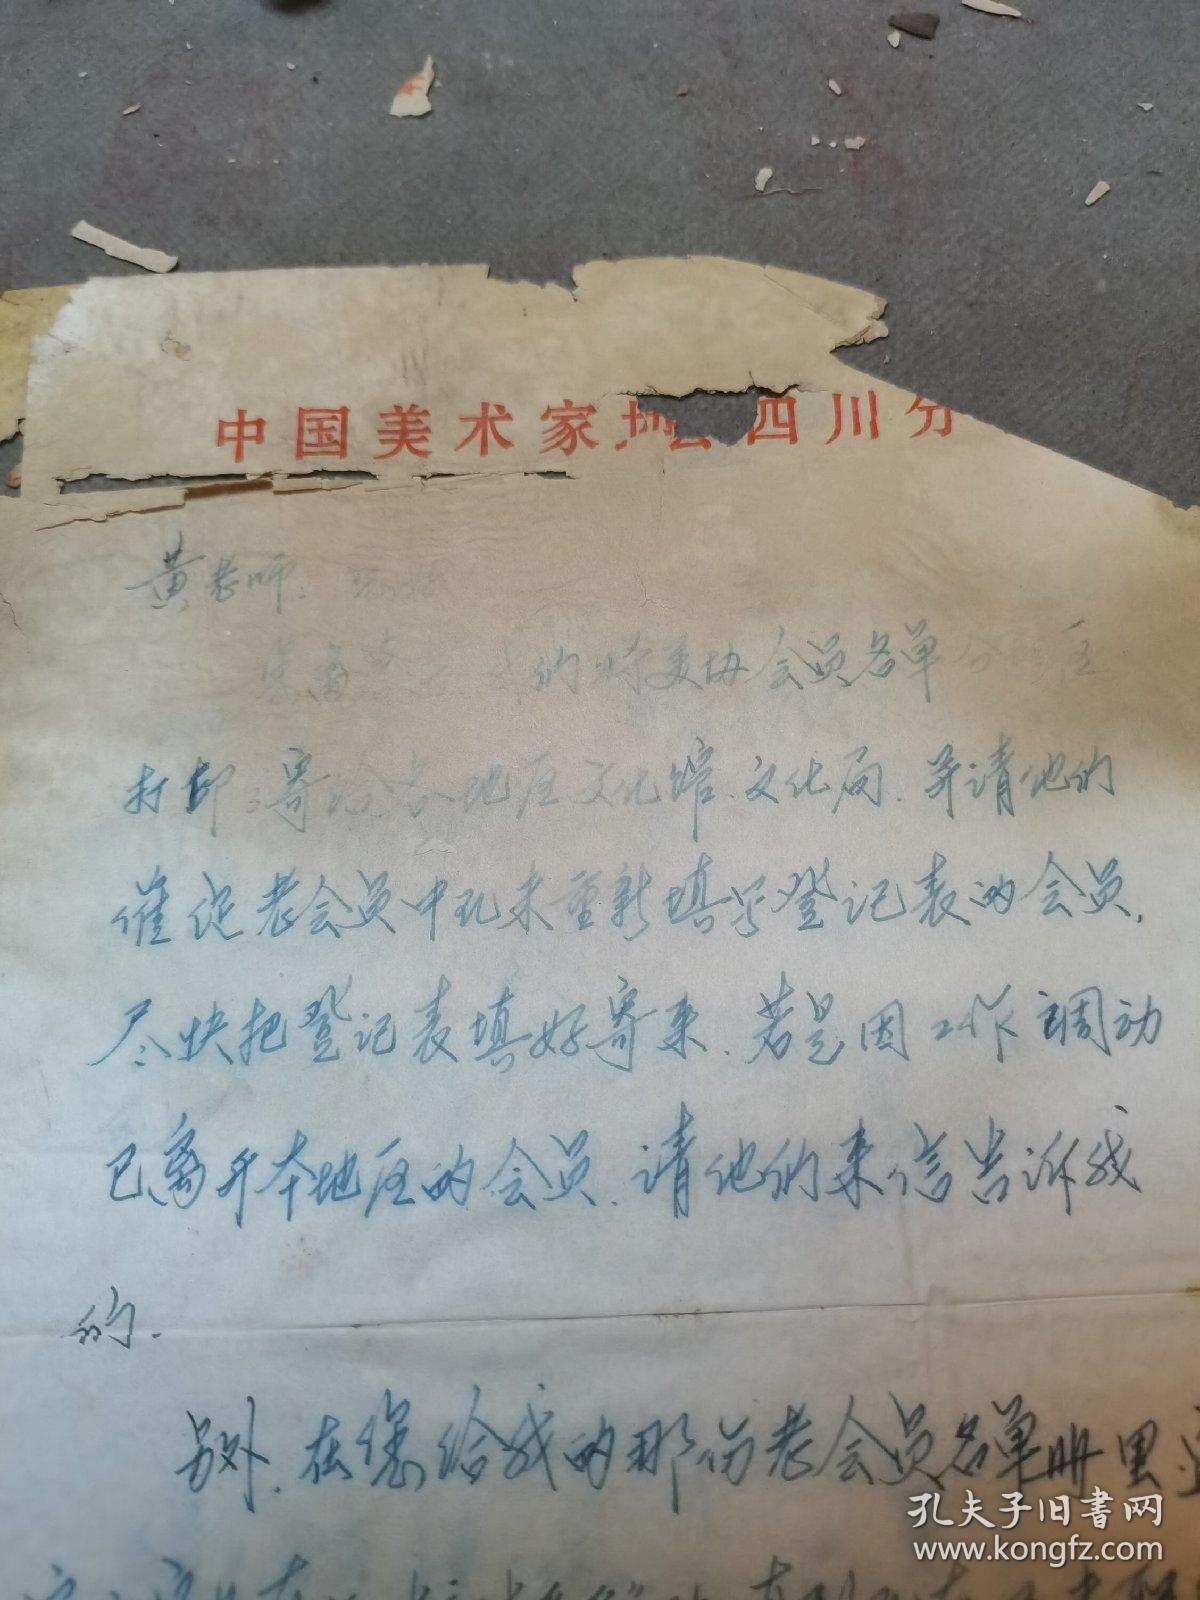 中国美术家 四川分
黄老师：
们将美协会员名单分
打印寄给各地区文化馆、文化局，并请他们
催促老会员中凡未重新填写登记表的会员，
尽快把登记表填好寄来。若是因工作调动
已离开本地区的会员，请他们来信告诉我
们。
另外，在您给我的那份老会员名单册里
孔夫子旧书网
www.kongfz.com